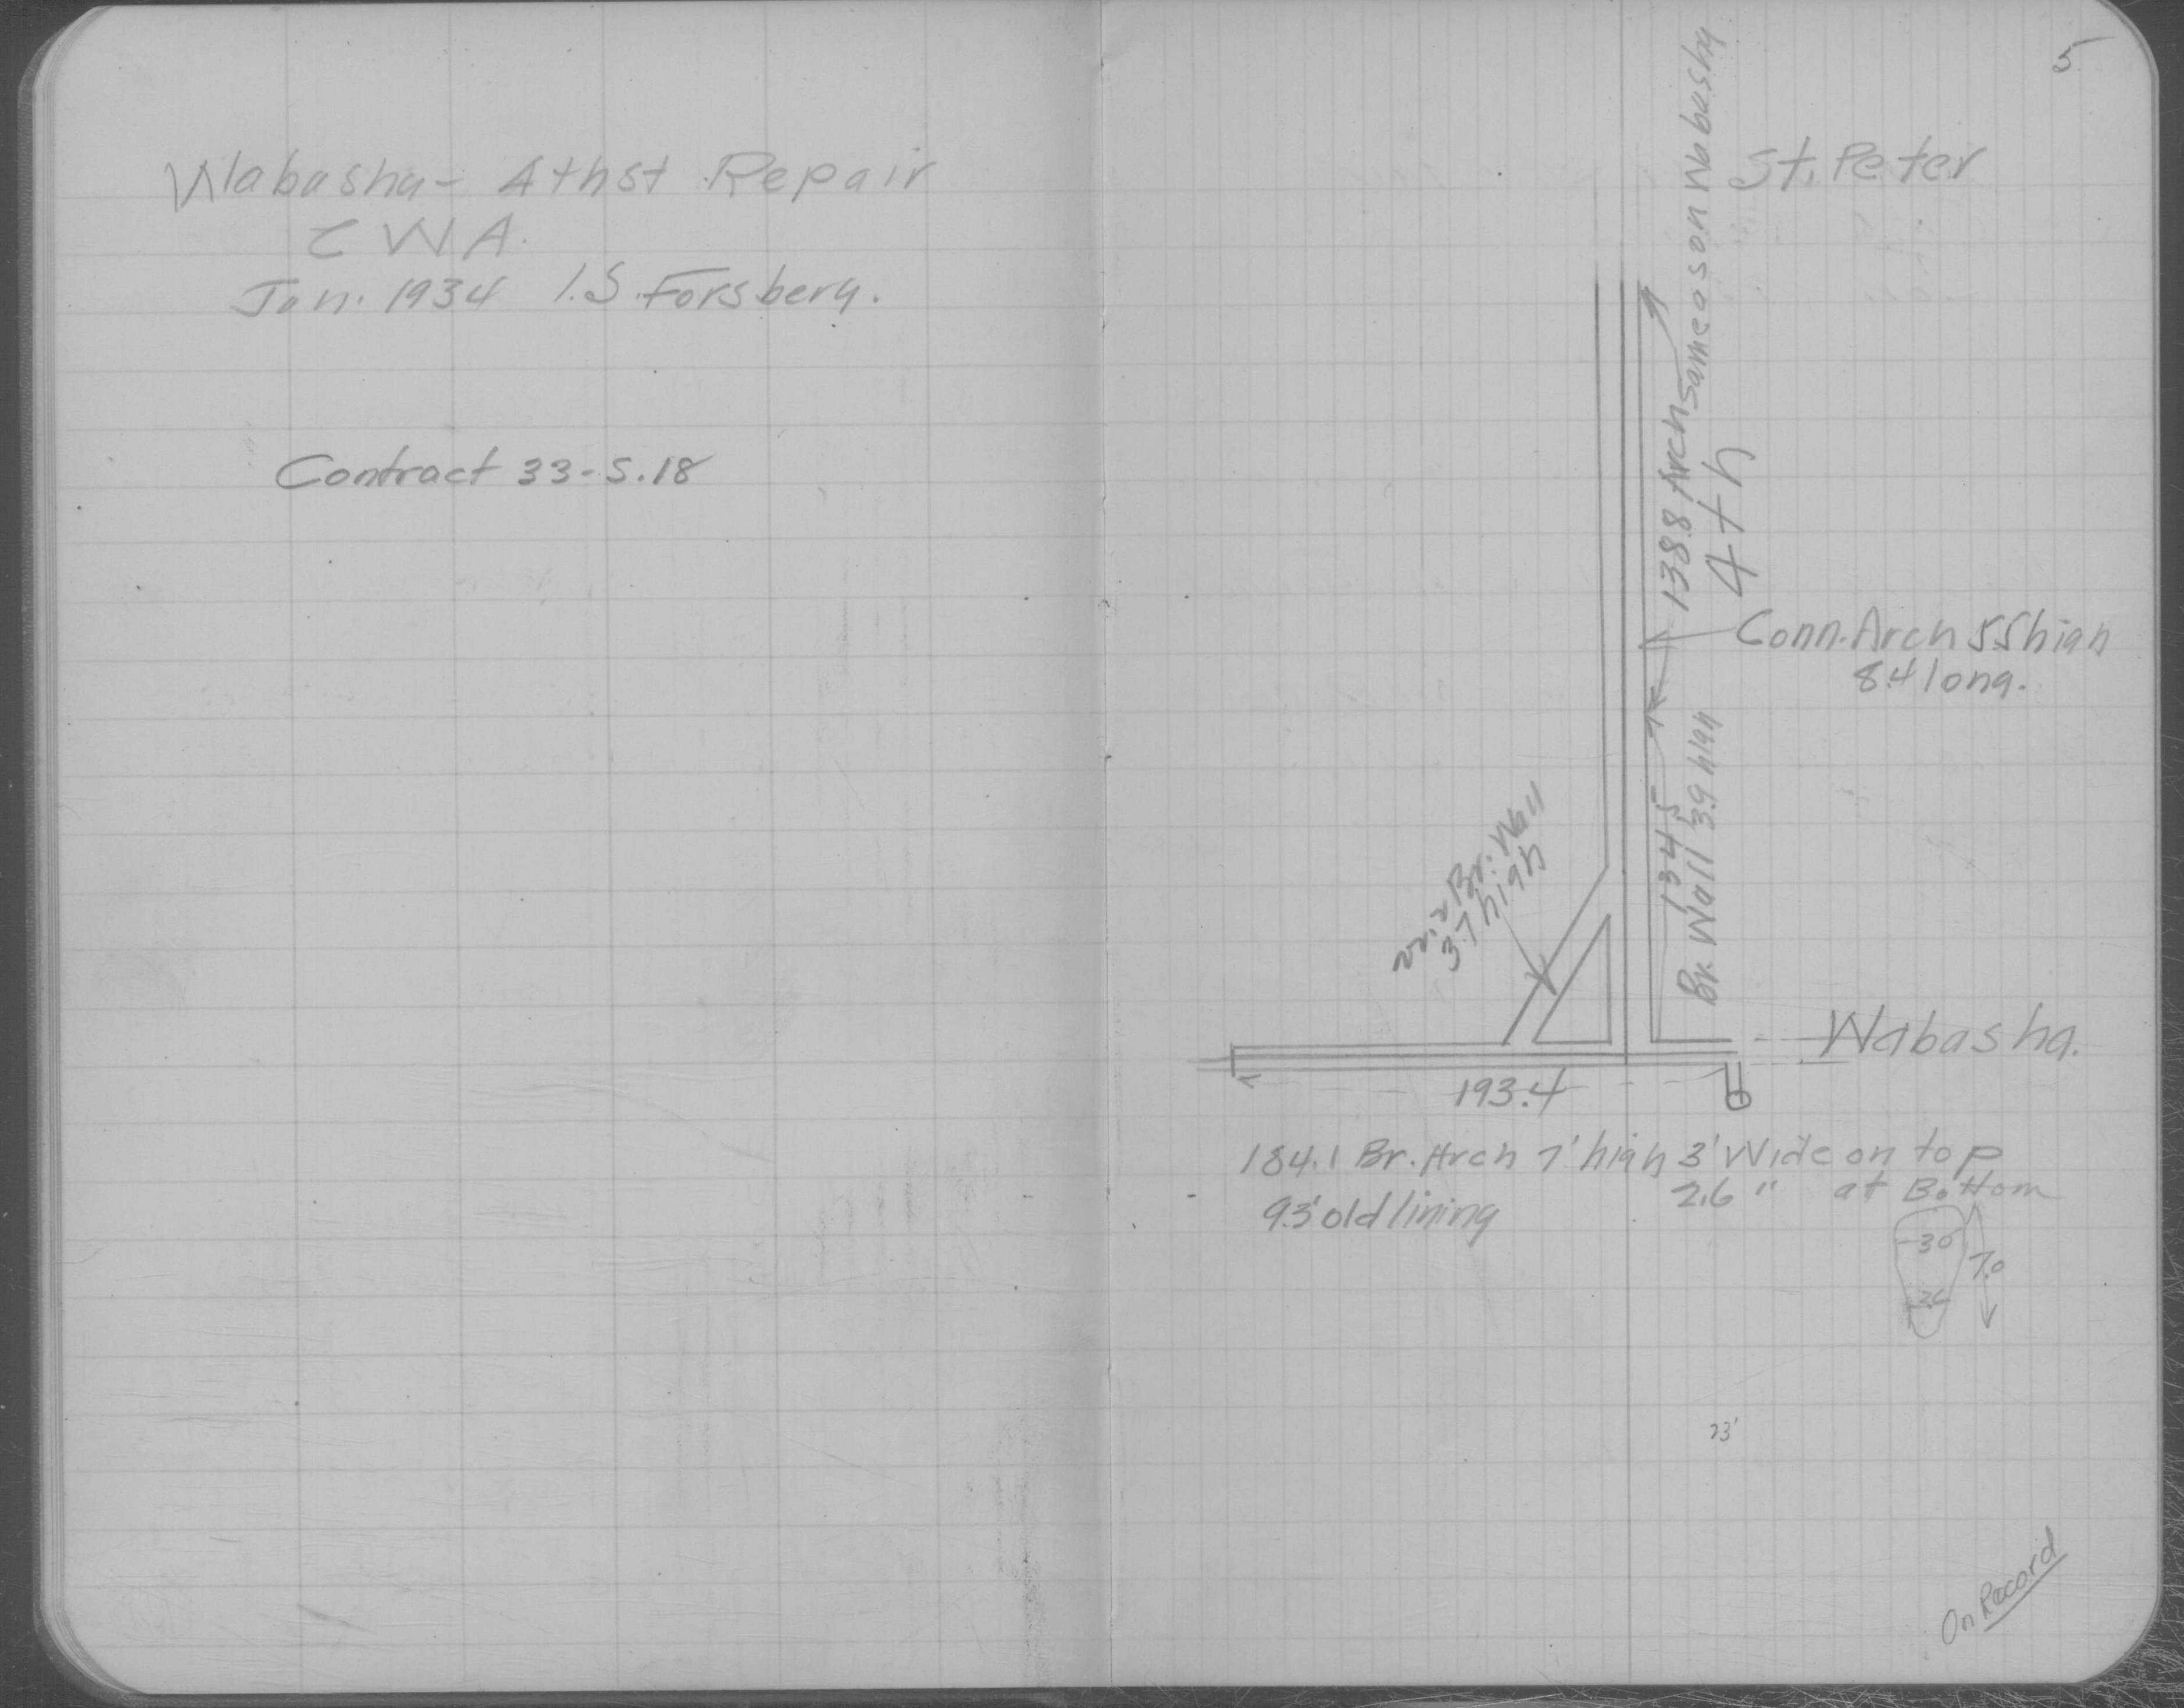 Wabasha - 4th st Repair
CWA.
Jan. 1934 I.S. Forsberg.
Contract 33-S.18
5
St. Peter
138.8 Arch same as on Wabasha
4th
Conn. Arch 5.5 high
8.4 long.
134.5
Br. Wall 3.9 high
Br. Wall
3.7 high
Wabasha.
193.4
184.1 Br. Arch 7' high 3' Wide on top
2.6 " at Bottom
9.3' old lining
3.0
7.0
2.6
23'
On Record